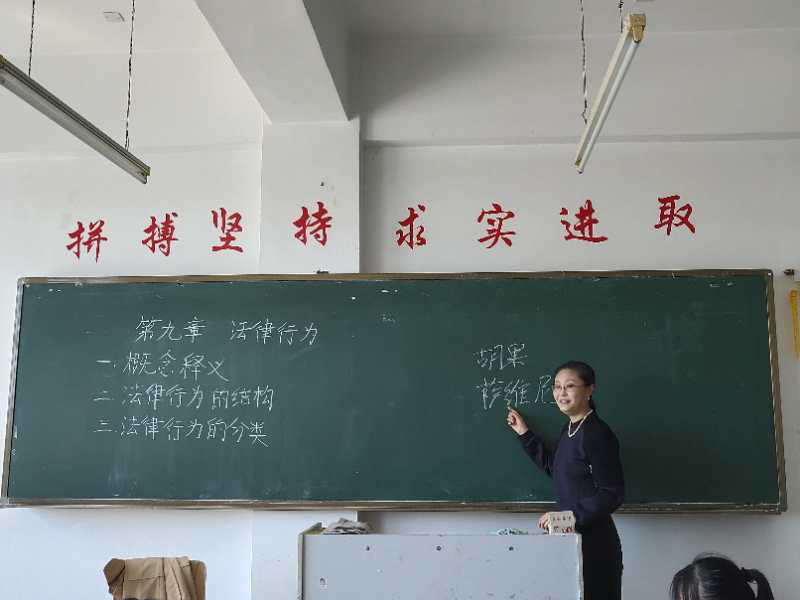 拼搏坚持求实进取
第九章 法律行为
一.概念释义
二.法律行为的结构
三.法律行为的分类
胡果
萨维尼